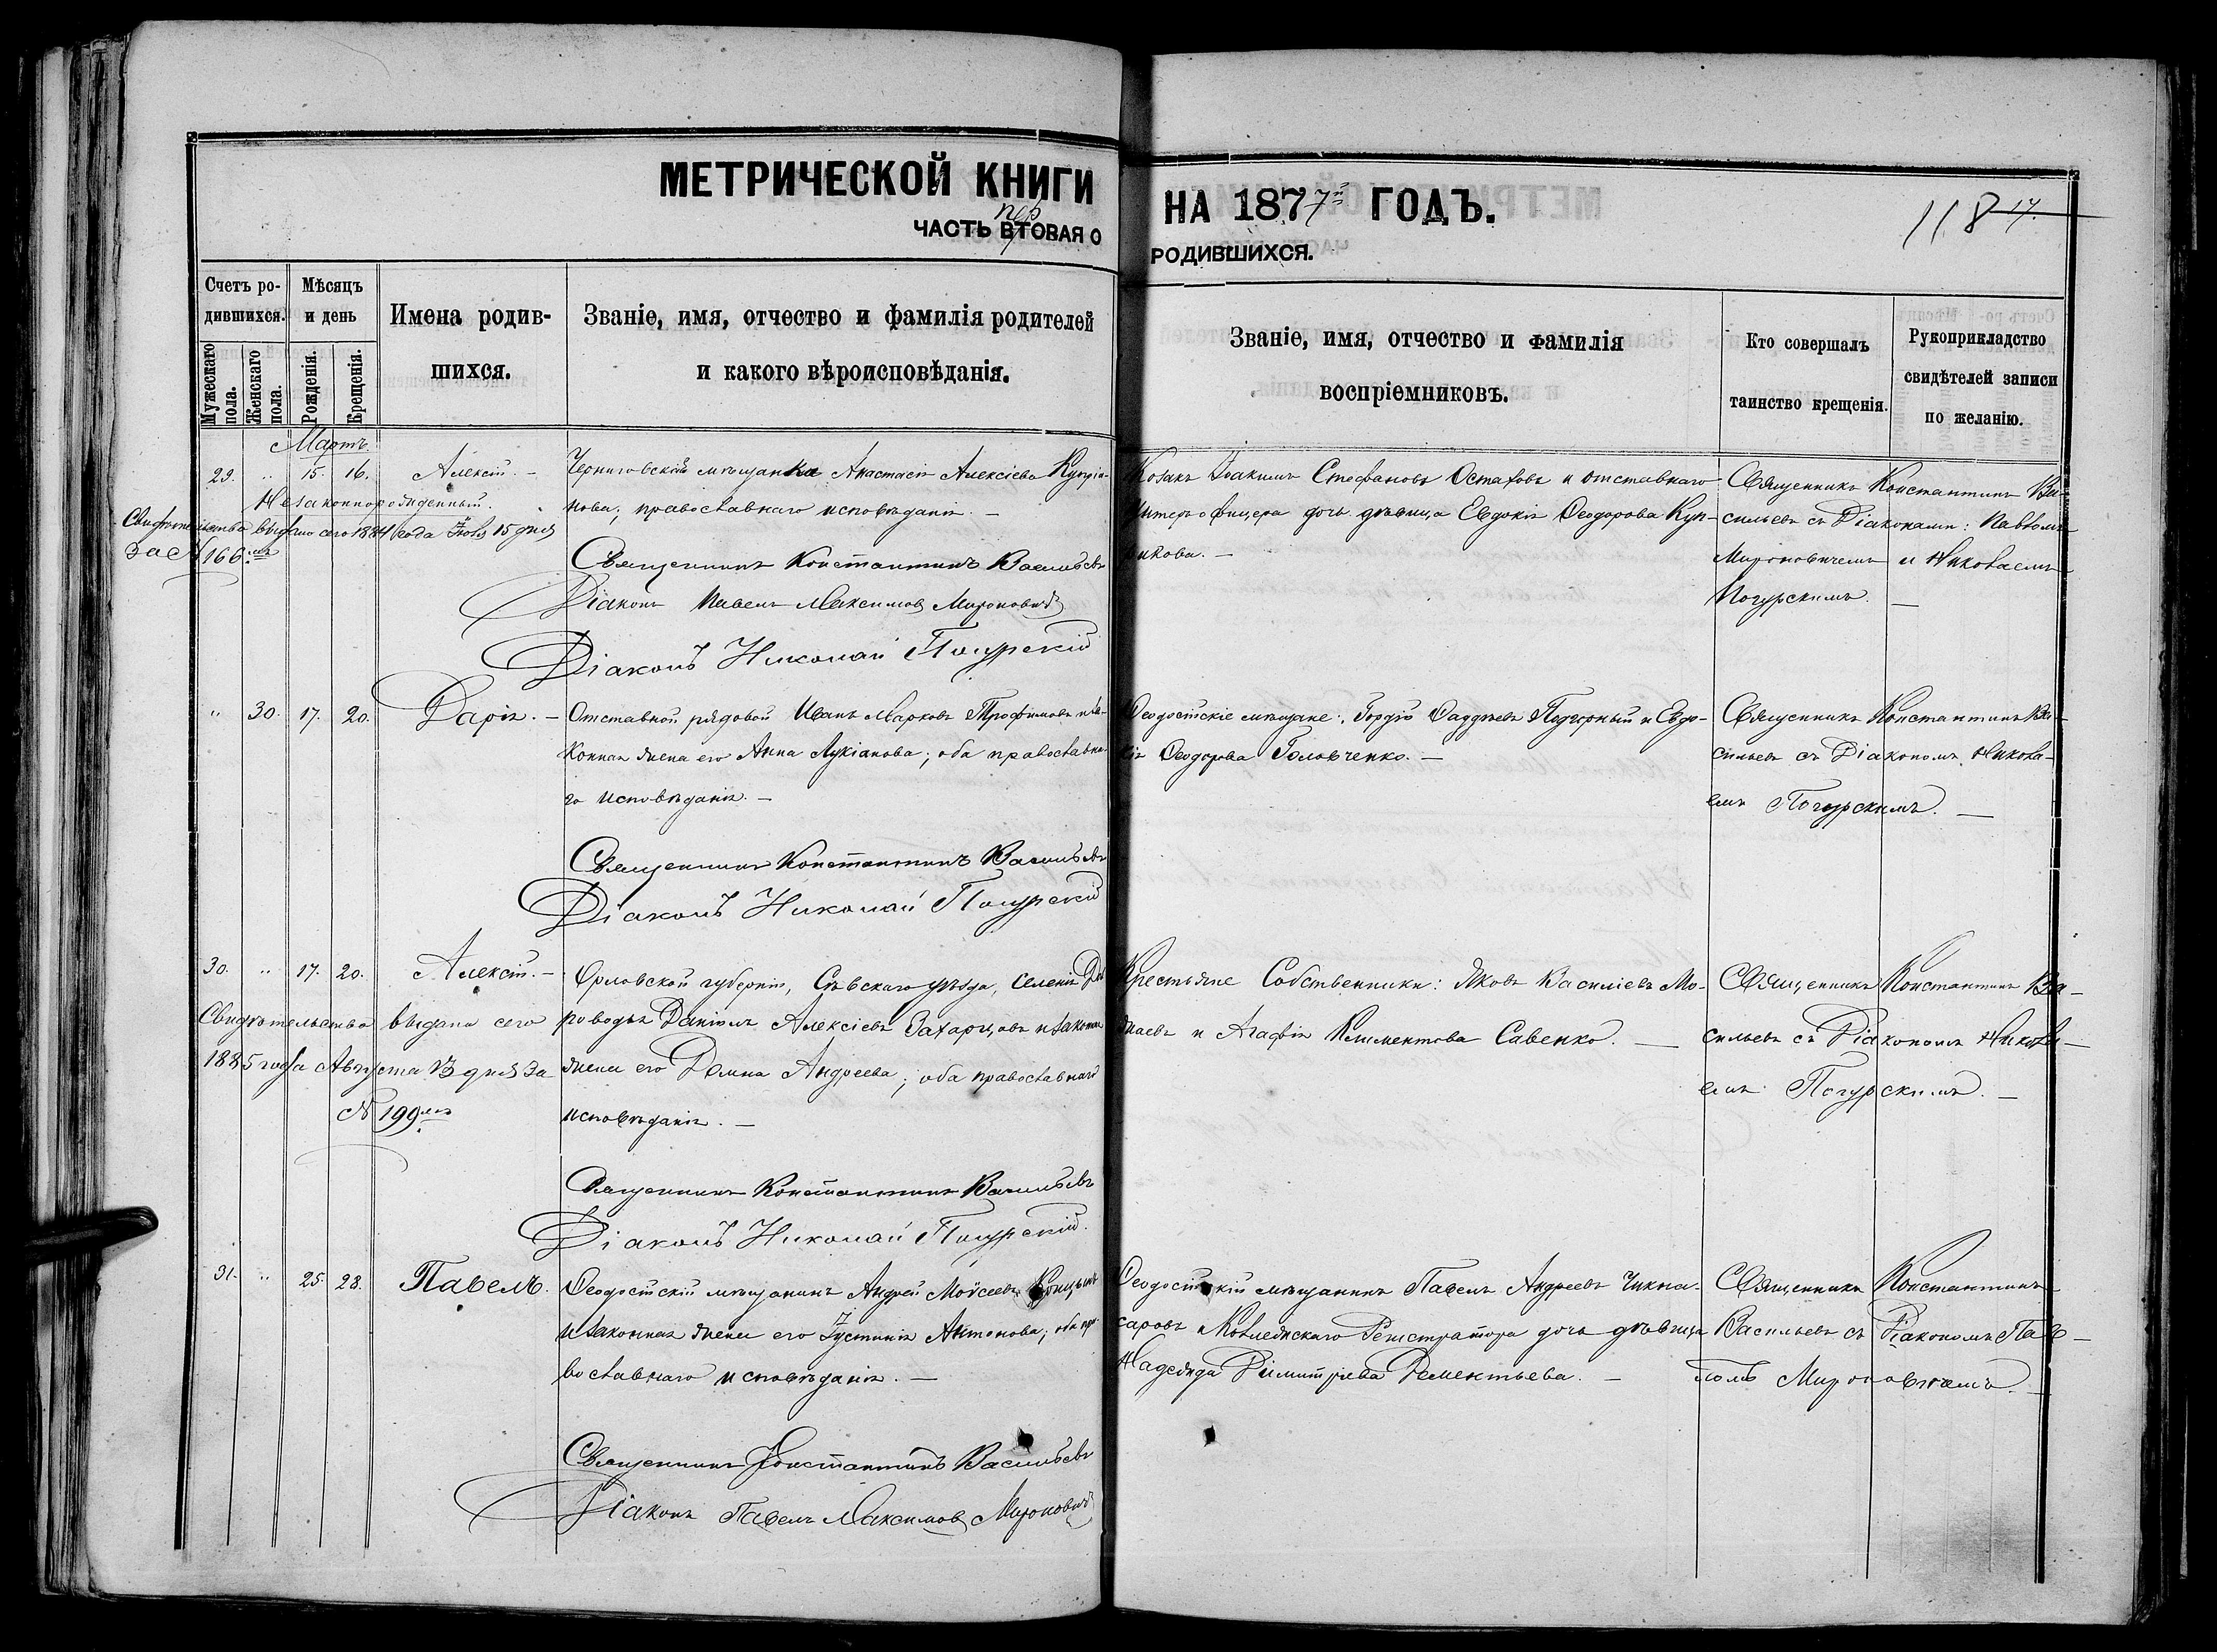 МЕТРИЧЕСКОЙ КНИГИ НА 1877й ГОДЪ.
ЧАСТЬ ВТОВАЯ О РОДИВШИХСЯ.
пер
118 17.
Счетъ ро-
дившихся.
Мужескаго пола.
Женскаго пола.
Мѣсяцъ
и день
Рожденія.
Крещенія.
Имена родив-
шихся.
Званіе, имя, отчество и фамилія родителей
и какого вѣроисповѣданія.
Званіе, имя, отчество и фамилія
воспріемниковъ.
Кто совершалъ
таинство крещенія.
Рукоприкладство
свидѣтелей записи
по желанію.
Мартъ.
29. " 15. 16. Алексій. –
Незаконнорожденный.
Свидѣтельство выдано сего 1884 года 15 дня
за № 166мъ
Черниговская мѣщанка Анастасія Алексіева
нова; православнаго исповѣданія. –
Священникъ Константинъ Васильевъ
Діаконъ Павелъ Максимовъ Мироновичъ
Діаконъ Николай Погурскій
Козакъ Іоакимъ Стефановъ Остаповъ и отставнаго
Унтеръ офицера дочь дѣвица Евдокія Ѳеодорова Куп-
рикова. –
Священникъ Константинъ Ва-
сильевъ съ Діаконами: Павломъ
Мироновичемъ и Николаемъ
Погурскимъ. –
" 30. 17. 20. Дарія. –
Отставной рядовой Иванъ Марковъ Трофимовъ и за-
конная жена его Анна Лукіанова; оба православна-
го исповѣданія. –
Священникъ Константинъ Васильевъ
Діаконъ Николай Погурскій
Ѳеодосійскіе мѣщане: Гордій Ѳаддѣевъ Подгорный и Евдо-
кія Ѳеодорова Головченко. –
Священникъ Константинъ Ва-
сильевъ съ Діакономъ Никола-
емъ Погурскимъ. –
30. " 17. 20. Алексій. –
Свидѣтельство выдано сего
1885 года Августа 13 дня за
№ 199мъ
Орловской губерніи, Сѣвскаго уѣзда, селенія
Даніилъ Алексіевъ Захарцовъ и законная
жена его Домна Андреева; оба православнаго
исповѣданія. –
Священникъ Константинъ Васильевъ
Діаконъ Николай Погурскій.
Крестьяне Собственники: Яковъ Василіевъ Мо-
жаевъ и Агафія Климентова Савенко. –
Священникъ Константинъ Ва-
сильевъ съ Діакономъ Никола-
емъ Погурскимъ. –
31. " 25. 28. Павелъ.
Ѳеодосійскій мѣщанинъ Андрей Моѵсеевъ
и законная жена его Іустинія Антонова; оба пра-
вославнаго исповѣданія. –
Священникъ Константинъ Васильевъ
Діаконъ Павелъ Максимовъ Мироновичъ
Ѳеодосійскій мѣщанинъ Павелъ Андреевъ Чикма-
саровъ и Коллежскаго Регистратора дочь дѣвица
Надежда Димитріева Дементьева. –
Священникъ Константинъ
Васильевъ съ Діакономъ Пав-
ломъ Мироновичемъ. –